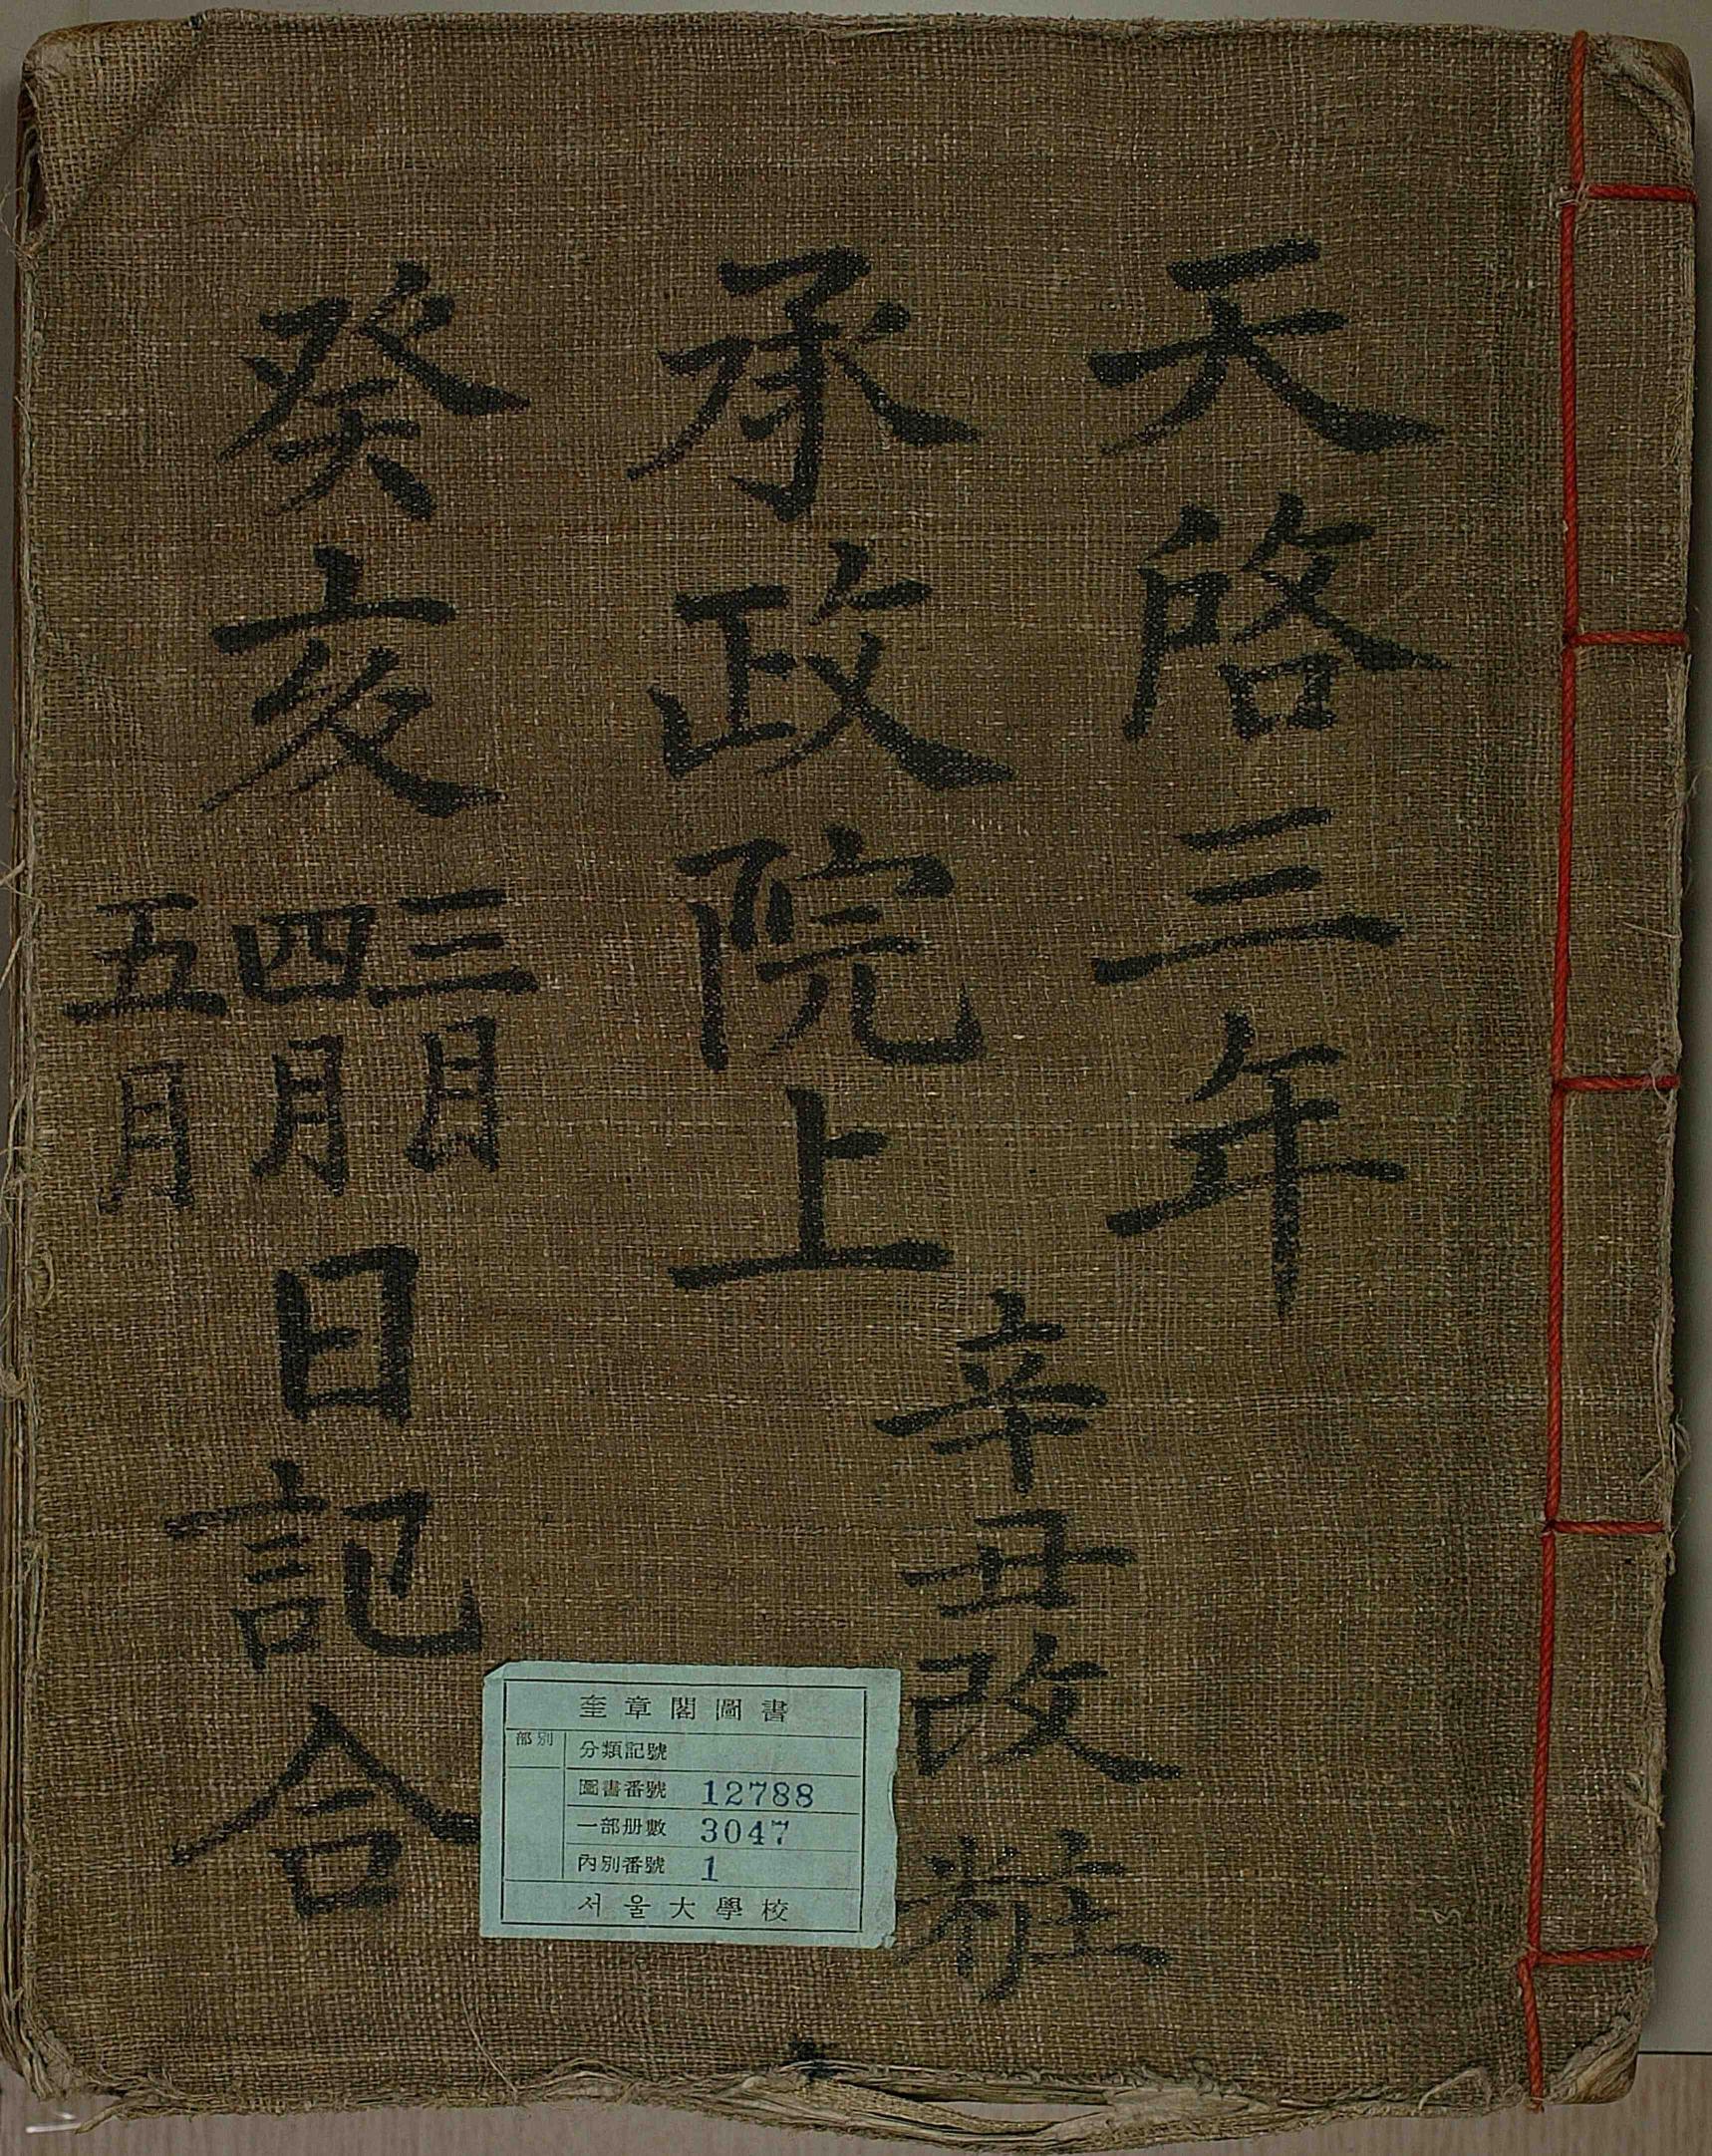 天啓三年
承政院上
辛丑改粧
癸亥
三月
四月
五月
日記合
奎章閣圖書
部別
分類記號
圖書番號 12788
一部册數 3047
內別番號 1
서울大學校